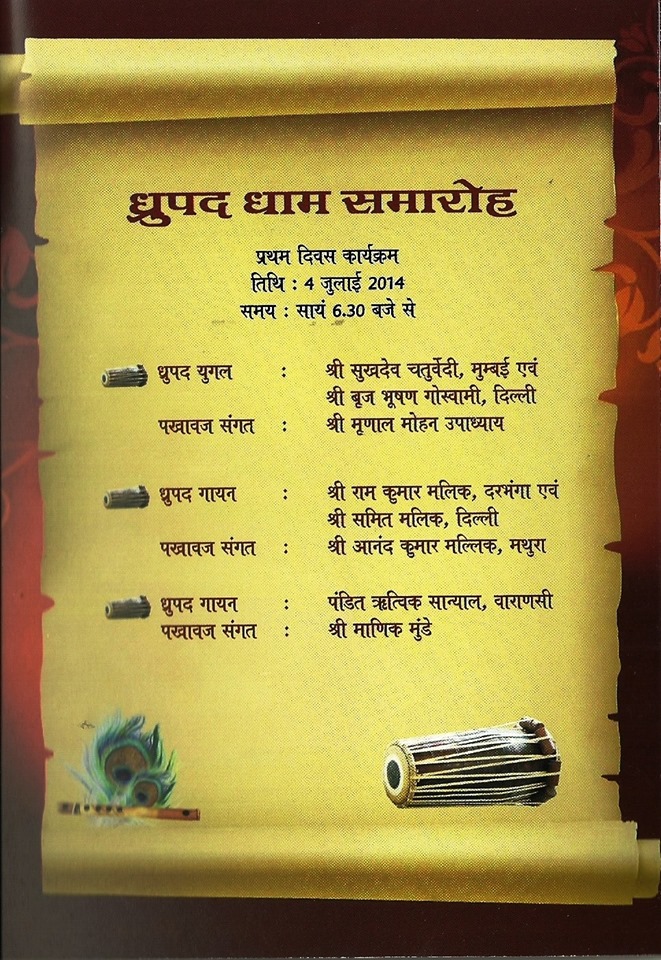 ध्रुपद धाम समारोह
प्रथम दिवस कार्यक्रम
तिथि : 4 जुलाई 2014
समय : सायं 6.30 बजे से
ध्रुपद युगल : श्री सुखदेव चतुर्वेदी, मुम्बई एवं
श्री बृज भूषण गोस्वामी, दिल्ली
पखावज संगत : श्री मृणाल मोहन उपाध्याय
ध्रुपद गायन : श्री राम कुमार मलिक, दरभंगा एवं
श्री समित मलिक, दिल्ली
पखावज संगत : श्री आनंद कुमार मल्लिक, मथुरा
ध्रुपद गायन : पंडित ऋत्विक सान्याल, वाराणसी
पखावज संगत : श्री माणिक मुंडे